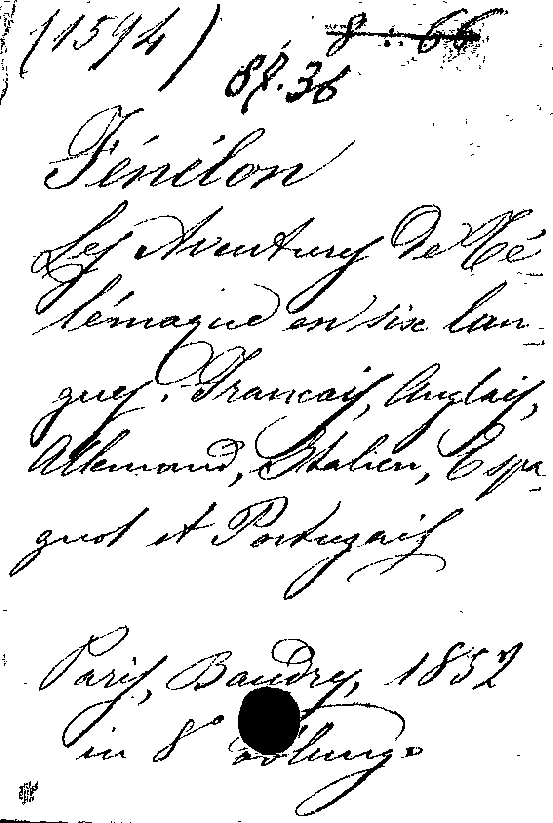 (1594) 8 : 66
8?.36
Fénélon
Les Aventures de Té-
lémaque en six lan-
gues. Francais, Anglais,
Allemand, Italien, Espa-
gnol et Portugais
Paris, Baudry, 1852
in 8°